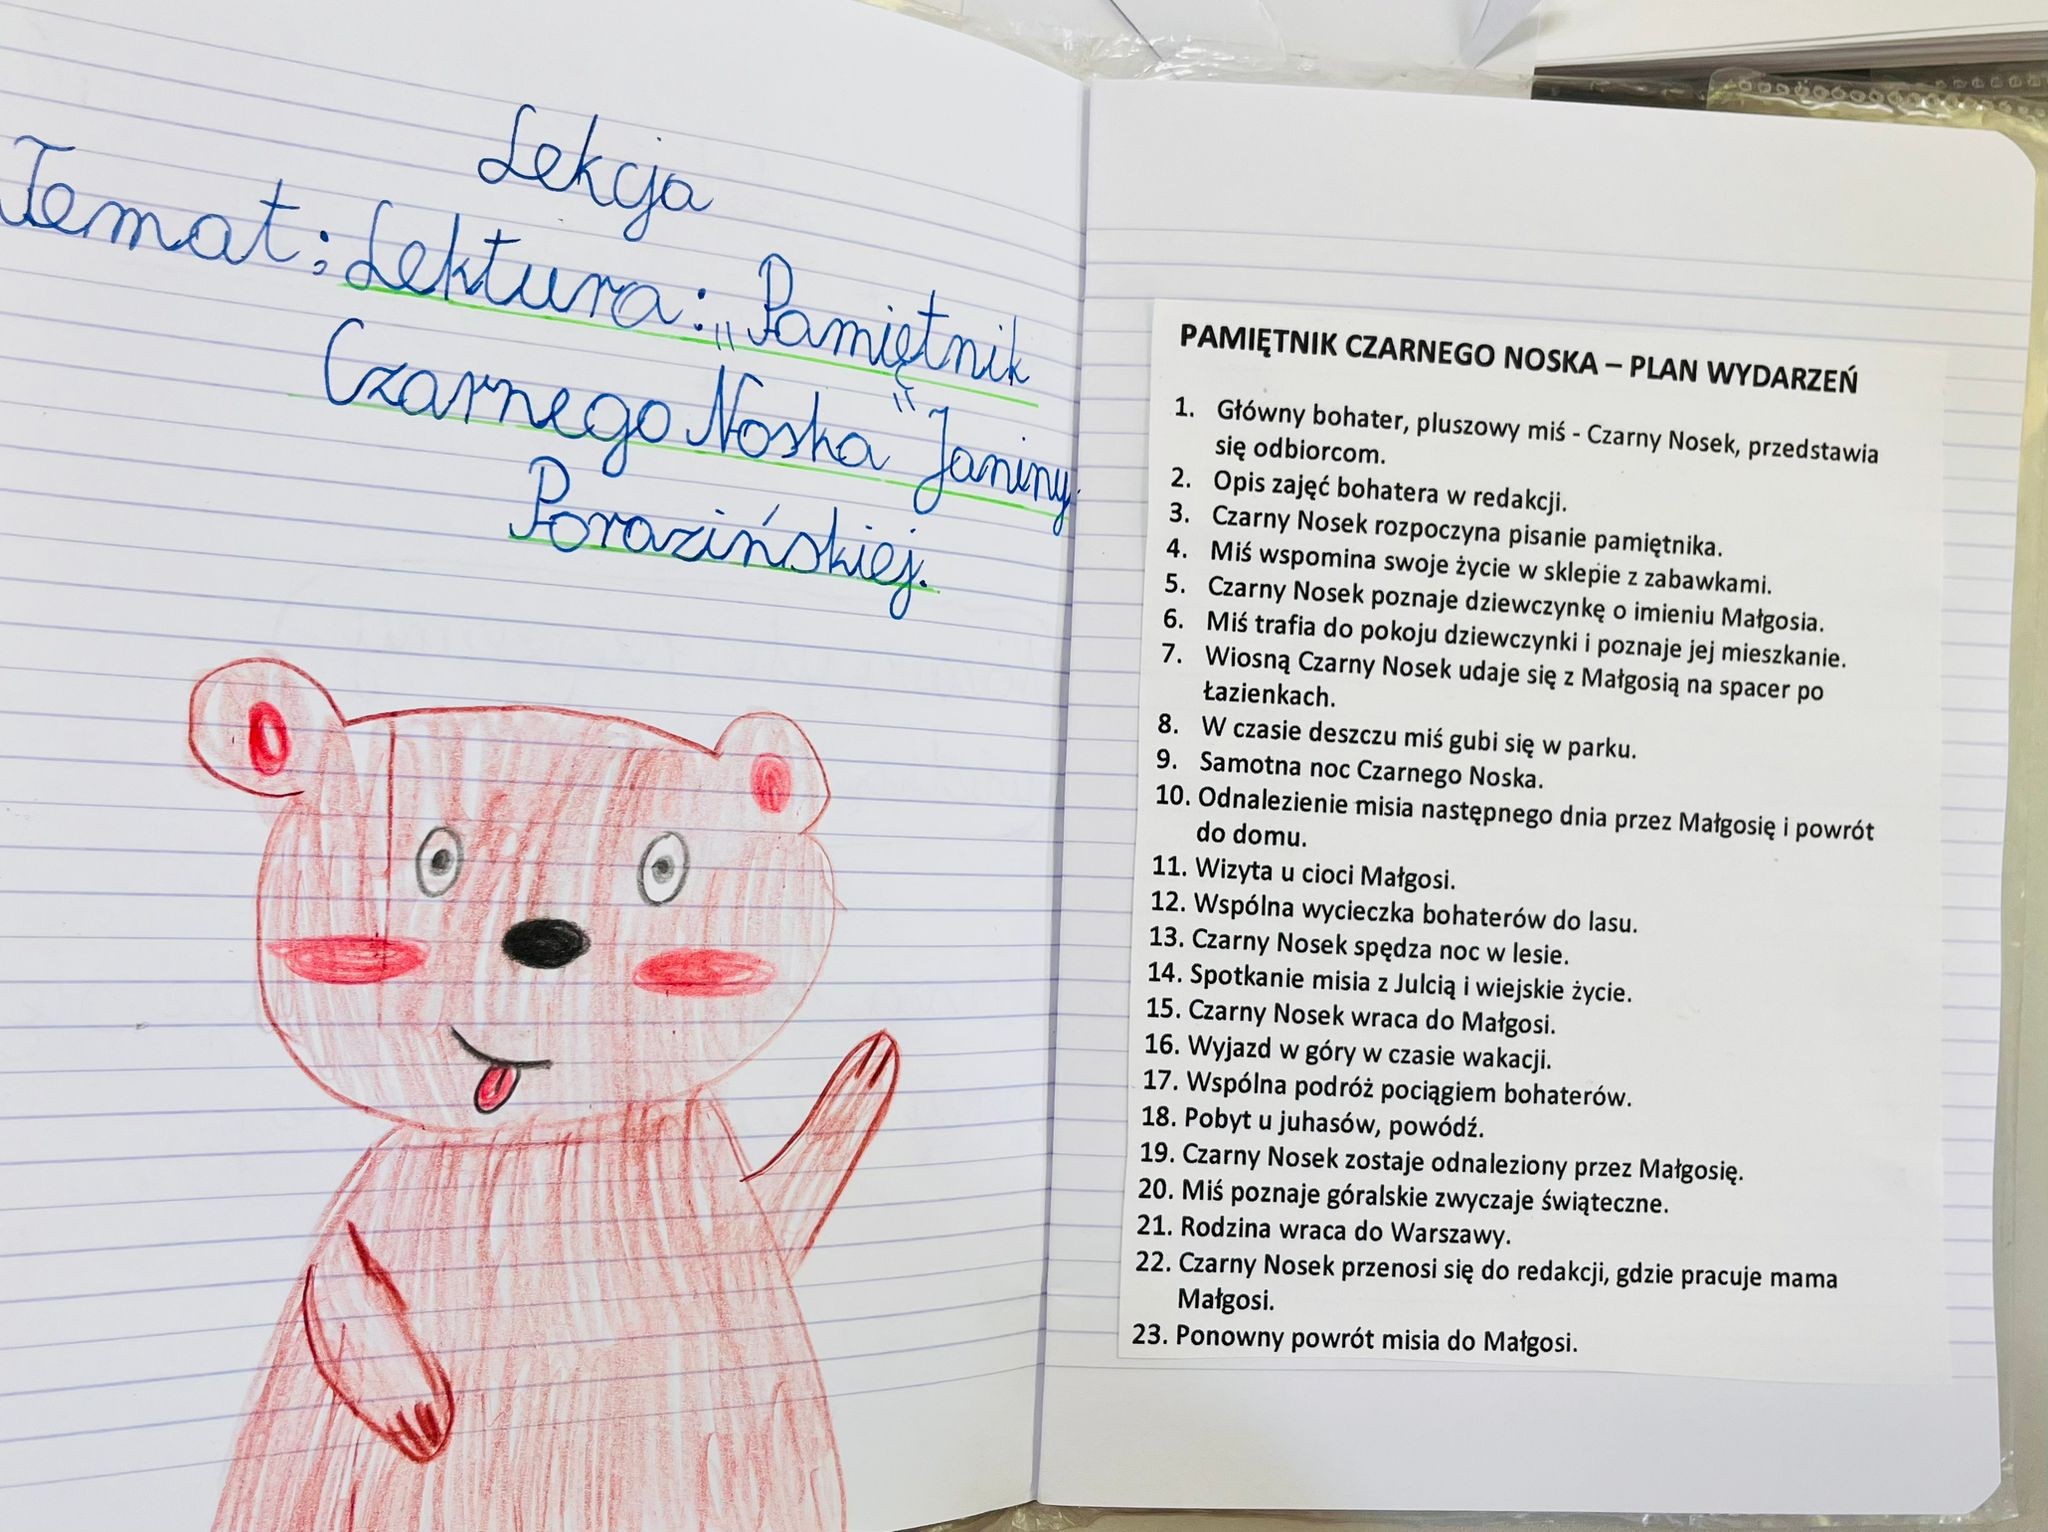 Lekcja
Temat: Lektura: „Pamiętnik
Czarnego Noska" Janiny
Porazińskiej.
PAMIĘTNIK CZARNEGO NOSKA – PLAN WYDARZEŃ
1. Główny bohater, pluszowy miś - Czarny Nosek, przedstawia
się odbiorcom.
2. Opis zajęć bohatera w redakcji.
3. Czarny Nosek rozpoczyna pisanie pamiętnika.
4. Miś wspomina swoje życie w sklepie z zabawkami.
5. Czarny Nosek poznaje dziewczynkę o imieniu Małgosia.
6. Miś trafia do pokoju dziewczynki i poznaje jej mieszkanie.
7. Wiosną Czarny Nosek udaje się z Małgosią na spacer po
Łazienkach.
8. W czasie deszczu miś gubi się w parku.
9. Samotna noc Czarnego Noska.
10. Odnalezienie misia następnego dnia przez Małgosię i powrót
do domu.
11. Wizyta u cioci Małgosi.
12. Wspólna wycieczka bohaterów do lasu.
13. Czarny Nosek spędza noc w lesie.
14. Spotkanie misia z Julcią i wiejskie życie.
15. Czarny Nosek wraca do Małgosi.
16. Wyjazd w góry w czasie wakacji.
17. Wspólna podróż pociągiem bohaterów.
18. Pobyt u juhasów, powódź.
19. Czarny Nosek zostaje odnaleziony przez Małgosię.
20. Miś poznaje góralskie zwyczaje świąteczne.
21. Rodzina wraca do Warszawy.
22. Czarny Nosek przenosi się do redakcji, gdzie pracuje mama
Małgosi.
23. Ponowny powrót misia do Małgosi.